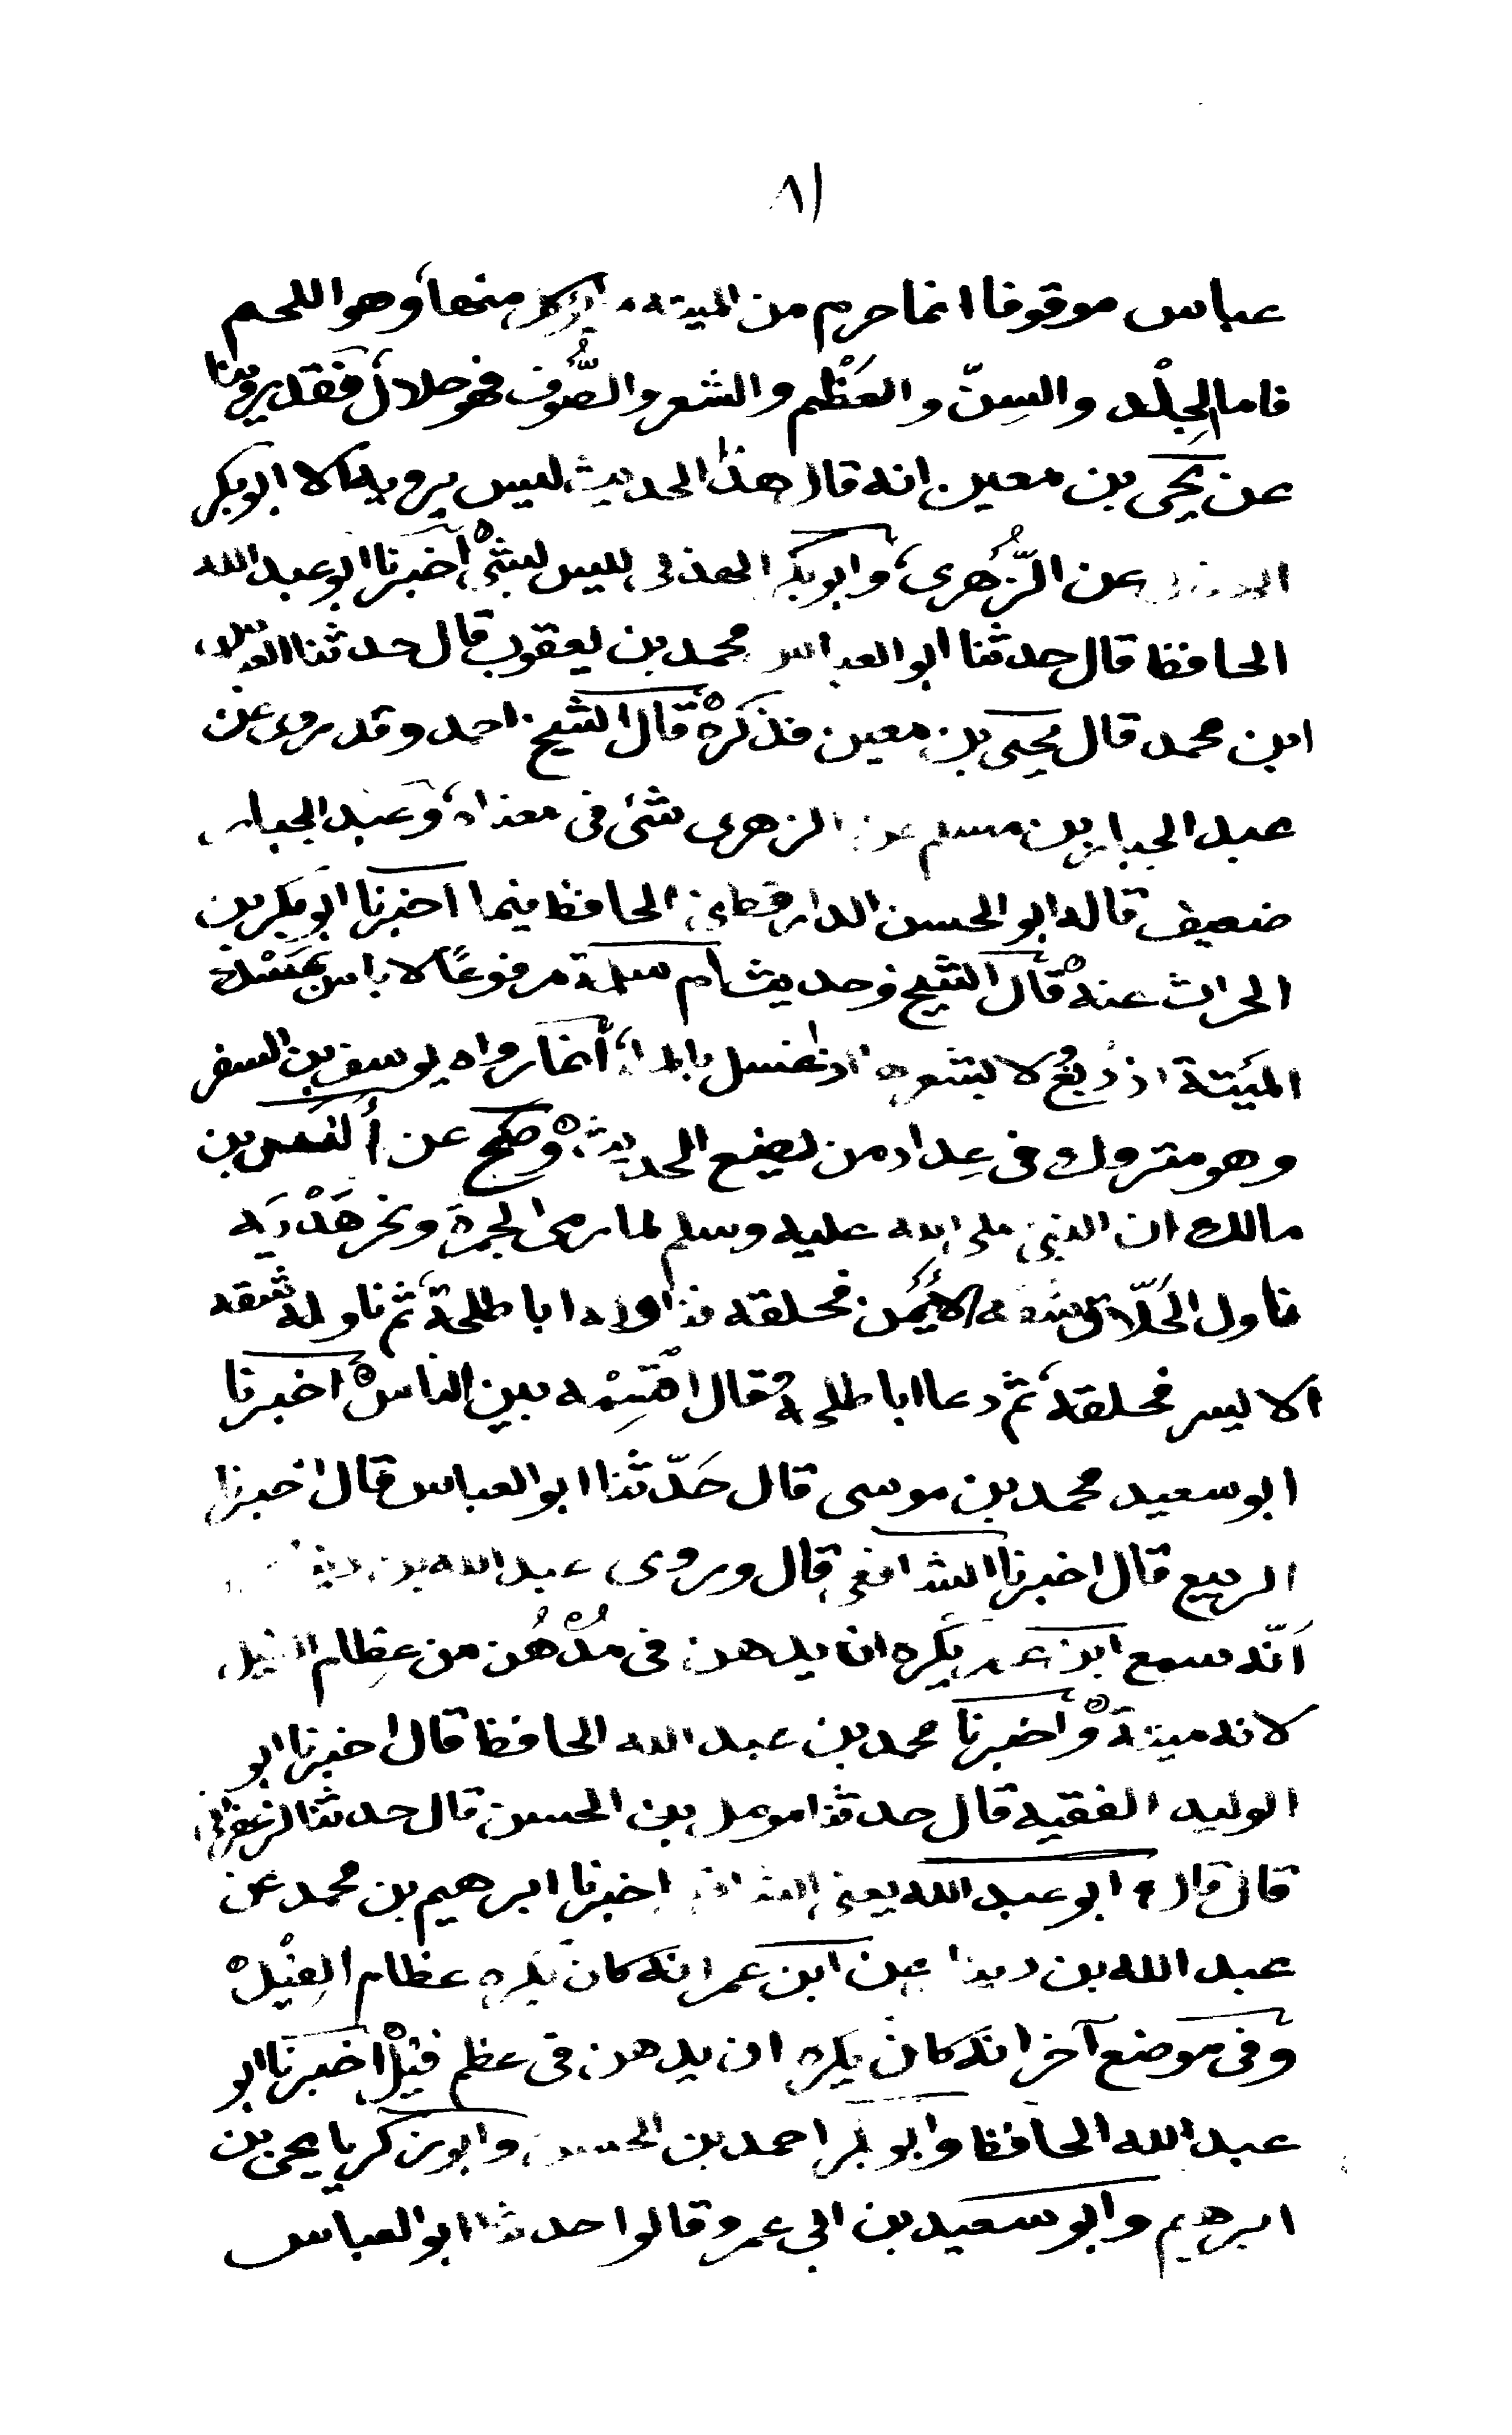 ٨١
عباس موقوفا انما حرم من الميتة ما يوكل منها، وهو اللحم
فاما الجِلْد والسِنّ والعَظْم والشعر والصُّوف فهو حلال، فقد روينا
عن يحيى بن معين انه قال هذا الحديث ليس يرويه الا ابو بكر
الهذلى عن الزُّهرى، وابو بكر الهذلى ليس بشئ، اخبرنا ابو عبد الله
الحافظ قال حدثنا ابو العباس محمد بن يعقوب قال حدثنا العباس
ابن محمد قال يحيى بن معين فذكره قال الشيخ احمد وقد روى عن
عبد الجبار بن مسلم عن الزهرى شئ فى معناه، وعبد الجبار
ضعيف قاله ابو الحسن الدارقطنى الحافظ فيما اخبرنا ابو بكر بن
الحراث عنه قال الشيخ وحديث ام سلمة مرفوعًا لا باس بمَسْك
الميَتة اذ دُبغ ولا بشعره اذا غسل بالماء، انما رواه يوسف بن السفر
وهو متروك فى عِداد من يضع الحديث، وصح عن أنس بن
مالك ان النبى صلى الله عليه وسلم لما رمى الجمرة ونحر هَدْيَه
ناول الحَلّاق شقه الايْمَن فحلقه فناوله ابا طلحة، ثم ناوله شقه
الايسر فحلقه، ثم دعا ابا طلحة فقال اقْسِمْه بين الناس اخبرنا
ابو سعيد محمد بن موسى قال حَدّثنا ابو العباس قال اخبرنا
الربيع قال اخبرنا الشافعى قال وروى عبد الله بن دينار
اَنّه سمع ابن عمر يكره ان يدهن فى مُدْهُن من عِظام الفيل
لانه ميتة واخبرنا محمد بن عبد الله الحافظ قال اخبرنا ابو
الوليد الفقيه قال حدثنا مومل بن الحسن قال حدثنا الزعفرانى
قال قال ابو عبد الله يعنى الشافعى اخبرنا ابرهيم بن محمد عن
عبد الله بن دينار عن ابن عمر انه كان يكره عظام الفِيْل
وفى موضع آخر انه كان يكره ان يدهن فى عظم فيل اخبرنا ابو
عبد الله الحافظ وابو بكر احمد بن الحسن وابو زكريا يحيى بن
ابرهيم وابو سعيد بن ابى عمرو قالوا حدثنا ابو العباس